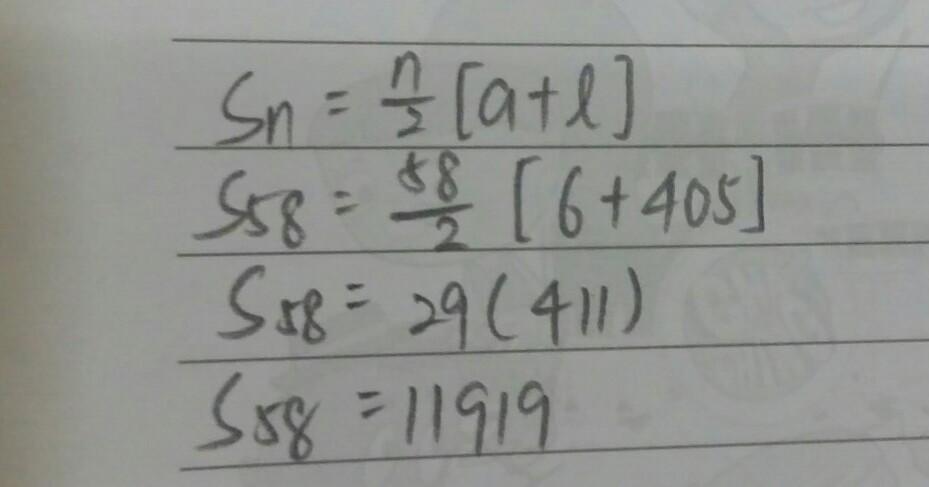 Sn = n/2 [a+l]
S58 = 58/2 [6+405]
S58 = 29(411)
S58 = 11919